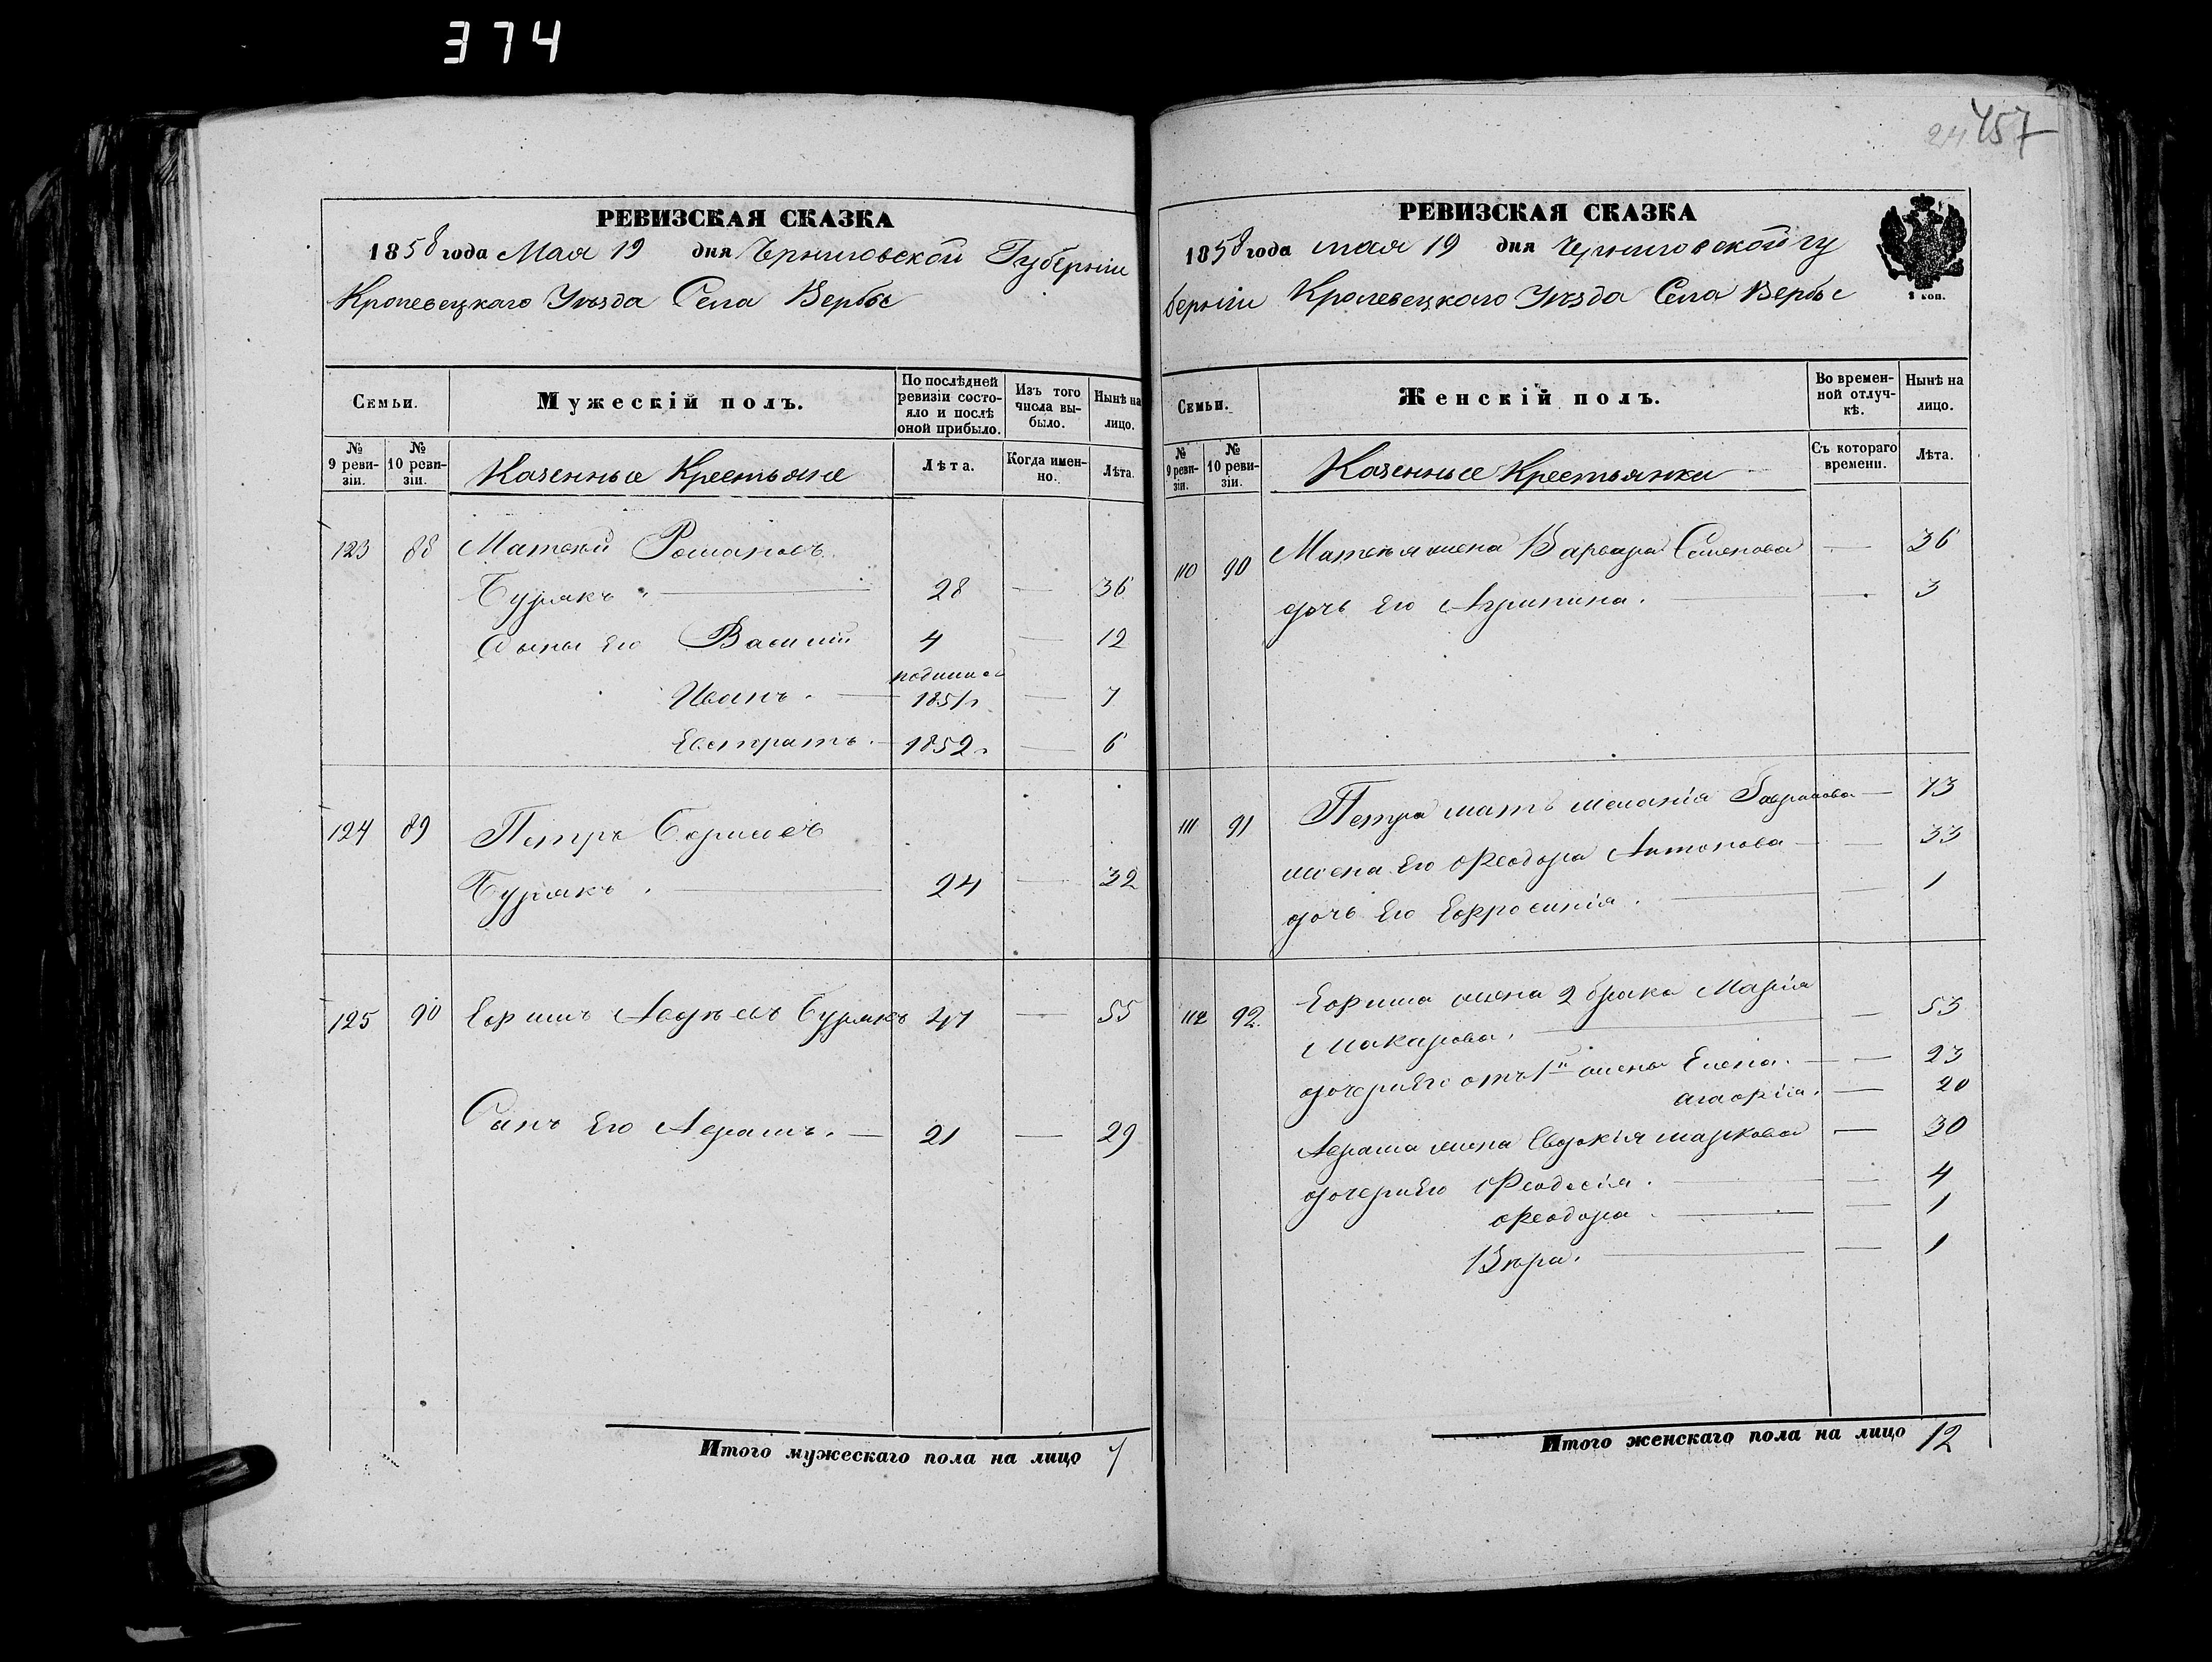 374
РЕВИЗСКАЯ СКАЗКА
1858 года Мая 19 дня Черниговской Губерніи
Кролевецкаго Уѣзда Села Вербы
Семьи.
Мужескій полъ.
По послѣдней ревизіи состояло и послѣ оной прибыло.
Изъ того числа выбыло.
Нынѣ на лицо.
№ 9 ревизіи.
№ 10 ревизіи.
Казенные Крестьяне
Лѣта.
Когда именно.
Лѣта.
123 88 Матвей Романовъ
Бурякъ 28 — 36
Сыны Его Василій 4 — 12
родился
Иванъ. — 1851г — 7
Евстратъ. — 1852г — 6
124 89 Петръ
Бурякъ. 24 — 32
125 90 Ефимъ Бурякъ 47 — 55
Сынъ Его Авраамъ. — 21 — 29
Итого мужескаго пола на лицо 7
457
РЕВИЗСКАЯ СКАЗКА
1858 года мая 19 дня Черниговской гу
берніи Кролевецкаго Уѣзда Села Вербы
2 коп.
Семьи.
Женскій полъ.
Во временной отлучкѣ.
Нынѣ на лицо.
№ 9 ревизіи.
№ 10 ревизіи.
Казенные Крестьянки
Съ котораго времени.
Лѣта.
110 90 Матвея жена Варвара Семенова — 36
дочь Его Агрипина. — 3
111 91 Петра мать Меланія Гаврилова — 73
жена Его Феодора Антонова — 33
дочь Его Ефросинія. — 1
112 92. Ефима жена 2 брака Марія
Макарова. — 53
дочери Его отъ 1й жены Елена. — 23
Агафія. — 20
Авраама жена Евдокія Маркова — 30
дочери Его Феодосія. — 4
Феодора — 1
Вѣра. — 1
Итого женскаго пола на лицо 12